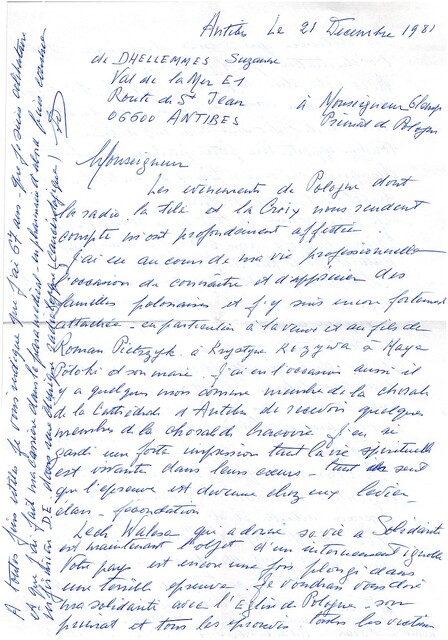 Antibes Le 21 Decembre 1981
de DHELLEMMES Suzanne
Val de la Mer E1
Route de St Jean
06600 ANTIBES
à Monseigneur Glemp
Primat de Pologne
Monseigneur
Les evènements de Pologne dont
la radio la télé et la Croix nous rendent
compte m'ont profondement affectée
J'ai eu au cours de ma vie professionnelle
l'occasion de connaître et d'apprécier des
familles polonaises et j'y suis encore fortement
attachée - en particulier à la veuve et au fils de
Roman Pietrzyk à Krystyna Kozywa à Maya
Potoki et son mari J'ai eu l'occasion aussi il
y a quelques mois comme membre de la chorale
de la Cathédrale d'Antibes de recevoir quelques
membres de la chorale de Cracovie J'en ai
gardé une forte impression tant la vie spirituelle
est vivante dans leurs cœurs - tout se sent
que l'épreuve est devenue chez eux
Lech Walesa qui a donné sa vie à Solidarité
est maintenant l'objet d'un internement
Votre pays est encore une fois plongé dans
une terrible épreuve Je voudrais vous dire
ma solidarité avec l'Eglise de Pologne son
primat et tous les éprouvés Toutes les victimes
A toutes fins utiles je vous indique que j'ai 67 ans que je suis célibataire
et que j'ai fait ma carrière dans le paramédical - infirmière
infirmière DE dans une clinique (cardiologique)